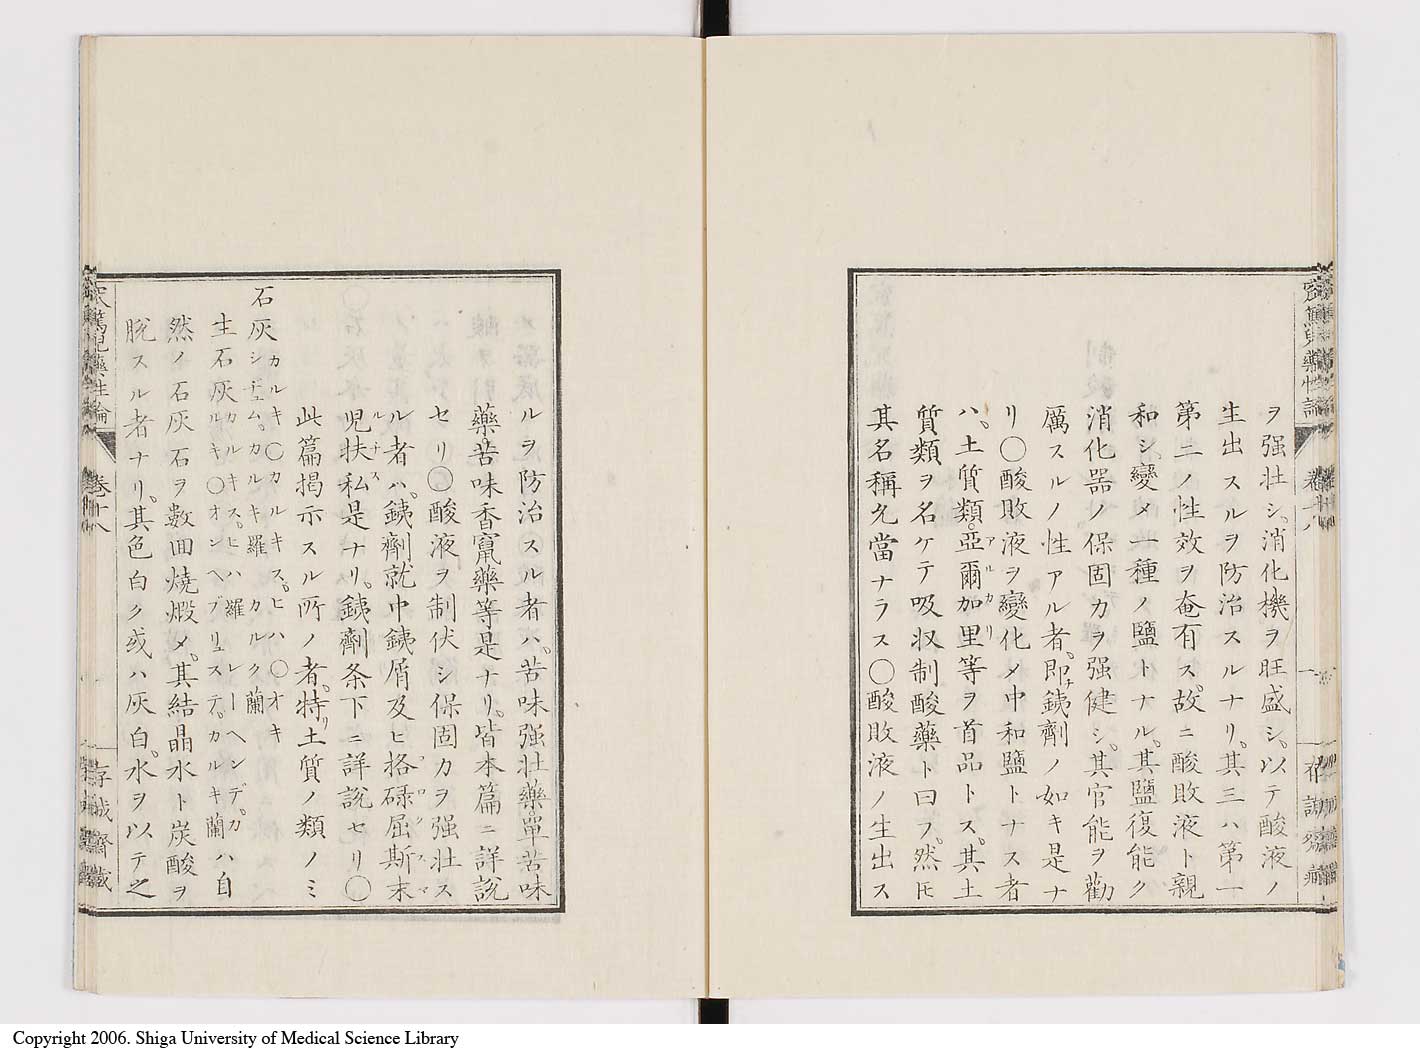 ヲ强壮シ、消化機ヲ旺盛シ、以テ酸液ノ
生出スルヲ防治スルナリ。其三ハ第一
第二ノ性效ヲ奄有ス。故ニ酸敗液ト親
和シ、變メ一種ノ鹽トナル。其鹽復能ク
消化器ノ保固力ヲ强健シ、其官能ヲ勸
厲スルノ性アル者、即チ鐵劑ノ如キ是ナ
リ〇酸敗液ヲ變化メ中和鹽トナス者
ハ、土質類、亞爾加里等ヲ首品トス。其土
質類ヲ名ケテ吸収制酸藥ト曰フ。然𪜈
其名稱允當ナラス〇酸敗液ノ生出ス
ルヲ防治スル者ハ、苦味强壮藥、單苦味
藥、苦味香竄藥等是ナリ。皆本篇ニ詳說
セリ〇酸液ヲ制伏シ保固力ヲ强壮ス
ル者ハ、銕劑、就中銕屑及ヒ格碌屈斯末
兒扶私是ナリ。銕劑条下ニ詳說セリ〇
此篇揭示スル所ノ者、特リ土質ノ類ノミ
石灰 カルキ〇カルキス。ヒハ〇オキ
シチュム。カルキ羅 カルク蘭
生石灰 カルキス。ヒハ羅 レーヘンデ。カ
ルキ〇オンヘブリュステ。カルキ蘭ハ自
然ノ石灰石ヲ數回燒煆メ、其結晶水ト炭酸ヲ
脫スル者ナリ。其色白ク或ハ灰白。水ヲ以テ之
卷十八
存誠齋藏